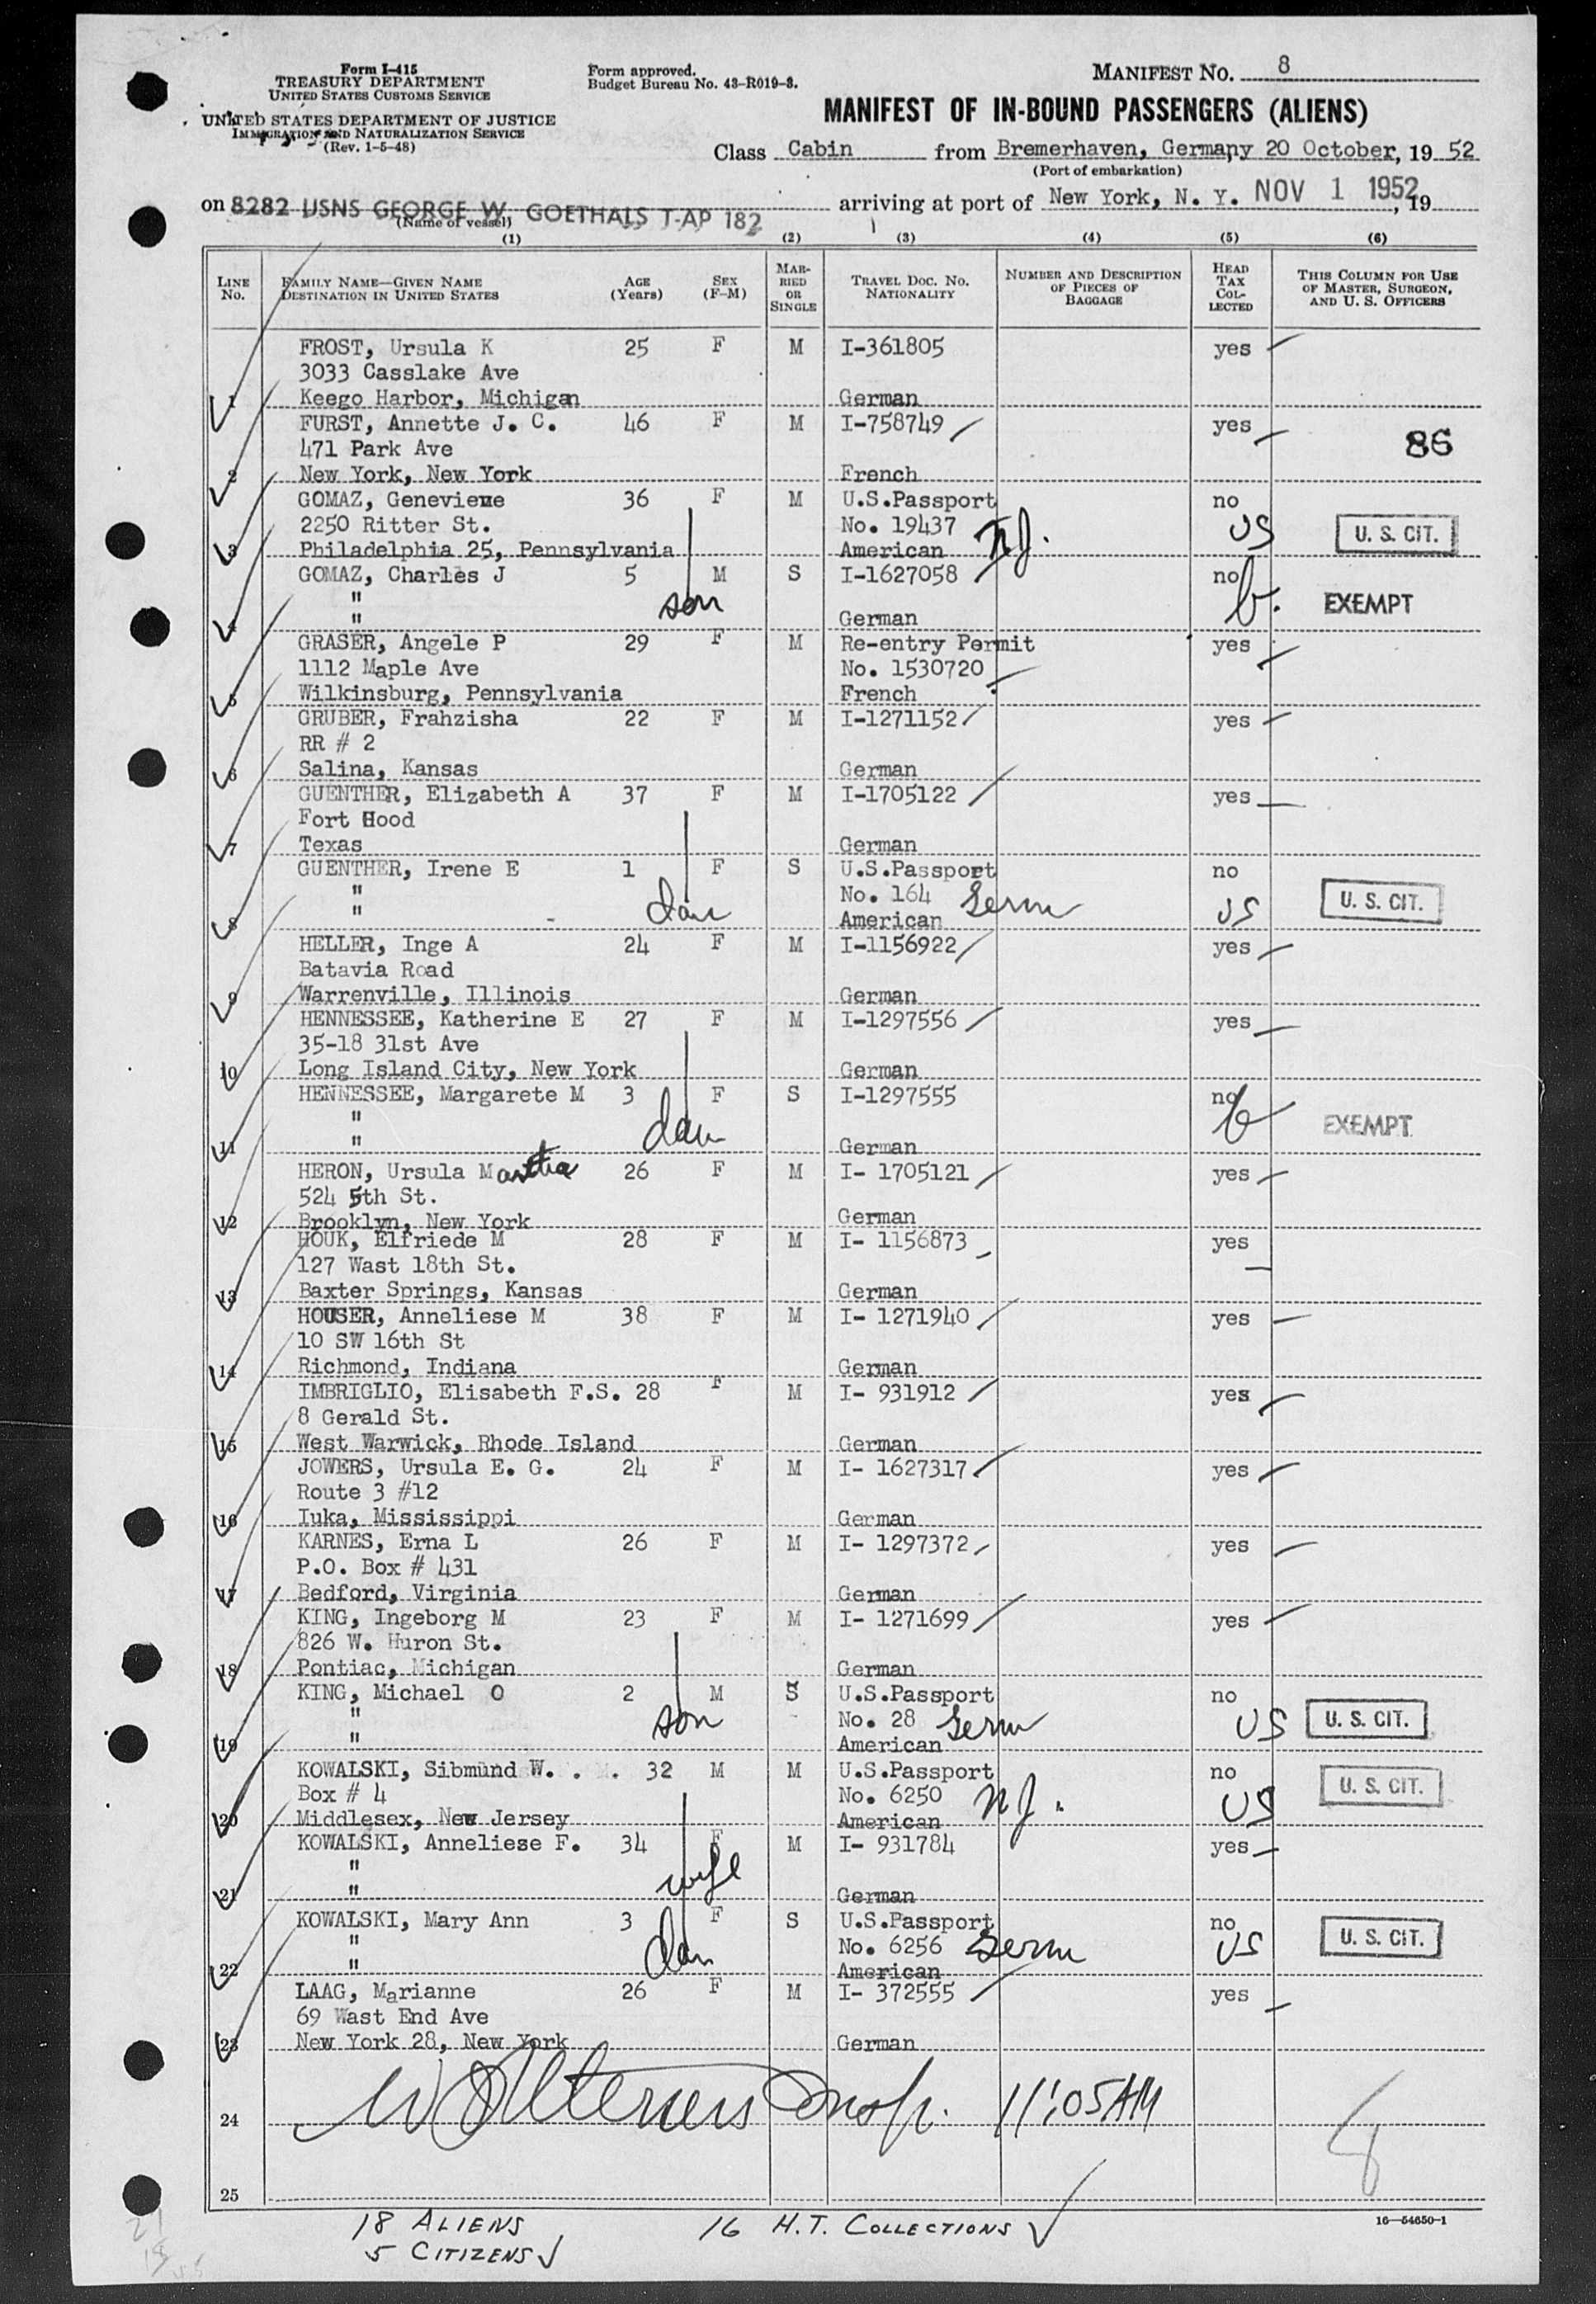 Form I-415
TREASURY DEPARTMENT
UNITED STATES CUSTOMS SERVICE
UNITED STATES DEPARTMENT OF JUSTICE
IMMIGRATION AND NATURALIZATION SERVICE
(Rev. 1-5-48)
Form approved.
Budget Bureau No. 43-R019-3.
MANIFEST NO. 8
MANIFEST OF IN-BOUND PASSENGERS (ALIENS)
Class Cabin from Bremerhaven, Germany 20 October, 19 52
(Port of embarkation)
on 8282 USNS GEORGE W. GOETHALS T-AP 182 arriving at port of New York, N. Y. NOV 1 1952, 19
(Name of vessel)
(1) (2) (3) (4) (5) (6)
LINE No. FAMILY NAME—GIVEN NAME DESTINATION IN UNITED STATES AGE (Years) SEX (F-M) MARRIED OR SINGLE TRAVEL DOC. NO. NATIONALITY NUMBER AND DESCRIPTION OF PIECES OF BAGGAGE HEAD TAX COLLECTED THIS COLUMN FOR USE OF MASTER, SURGEON, AND U. S. OFFICERS
FROST, Ursula K 25 F M I-361805 yes
3033 Casslake Ave
1 Keego Harbor, Michigan German
FURST, Annette J. C. 46 F M I-758749 yes 86
471 Park Ave
2 New York, New York French
GOMAZ, Genevieve 36 F M U.S.Passport no
2250 Ritter St. No. 19437 N.J. US U. S. CIT.
3 Philadelphia 25, Pennsylvania American
GOMAZ, Charles J 5 M S I-1627058 no
" son b. EXEMPT
4 " German
GRASER, Angele P 29 F M Re-entry Permit yes
1112 Maple Ave No. 1530720
5 Wilkinsburg, Pennsylvania French
GRUBER, Frahzisha 22 F M I-1271152 yes
RR # 2
6 Salina, Kansas German
GUENTHER, Elizabeth A 37 F M I-1705122 yes
Fort Hood
7 Texas German
GUENTHER, Irene E 1 F S U.S.Passport no
" dau No. 164 Germ US U. S. CIT.
8 " American
HELLER, Inge A 24 F M I-1156922 yes
Batavia Road
9 Warrenville, Illinois German
HENNESSEE, Katherine E 27 F M I-1297556 yes
35-18 31st Ave
10 Long Island City, New York German
HENNESSEE, Margarete M 3 F S I-1297555 no
" dau b EXEMPT
11 " German
HERON, Ursula Martha 26 F M I- 1705121 yes
524 5th St.
12 Brooklyn, New York German
HOUK, Elfriede M 28 F M I- 1156873 yes
127 Wast 18th St.
13 Baxter Springs, Kansas German
HOUSER, Anneliese M 38 F M I- 1271940 yes
10 SW 16th St
14 Richmond, Indiana German
IMBRIGLIO, Elisabeth F.S. 28 F M I- 931912 yes
8 Gerald St.
15 West Warwick, Rhode Island German
JOWERS, Ursula E. G. 24 F M I- 1627317 yes
Route 3 #12
16 Iuka, Mississippi German
KARNES, Erna L 26 F M I- 1297372 yes
P.O. Box # 431
17 Bedford, Virginia German
KING, Ingeborg M 23 F M I- 1271699 yes
826 W. Huron St.
18 Pontiac, Michigan German
KING, Michael O 2 M S U.S.Passport no
" son No. 28 Germ US U. S. CIT.
19 " American
KOWALSKI, Sibmund W. . . 32 M M U.S.Passport no
Box # 4 No. 6250 N.J. US U. S. CIT.
20 Middlesex, New Jersey American
KOWALSKI, Anneliese F. 34 F M I- 931784 yes
" wife
21 " German
KOWALSKI, Mary Ann 3 F S U.S.Passport no
" dau No. 6256 Germ US U. S. CIT.
22 " American
LAAG, Marianne 26 F M I- 372555 yes
69 Wast End Ave
23 New York 28, New York German
24 Insp. 11:05 AM 8
25
18 ALIENS 16 H.T. COLLECTIONS
5 CITIZENS
16—54650-1